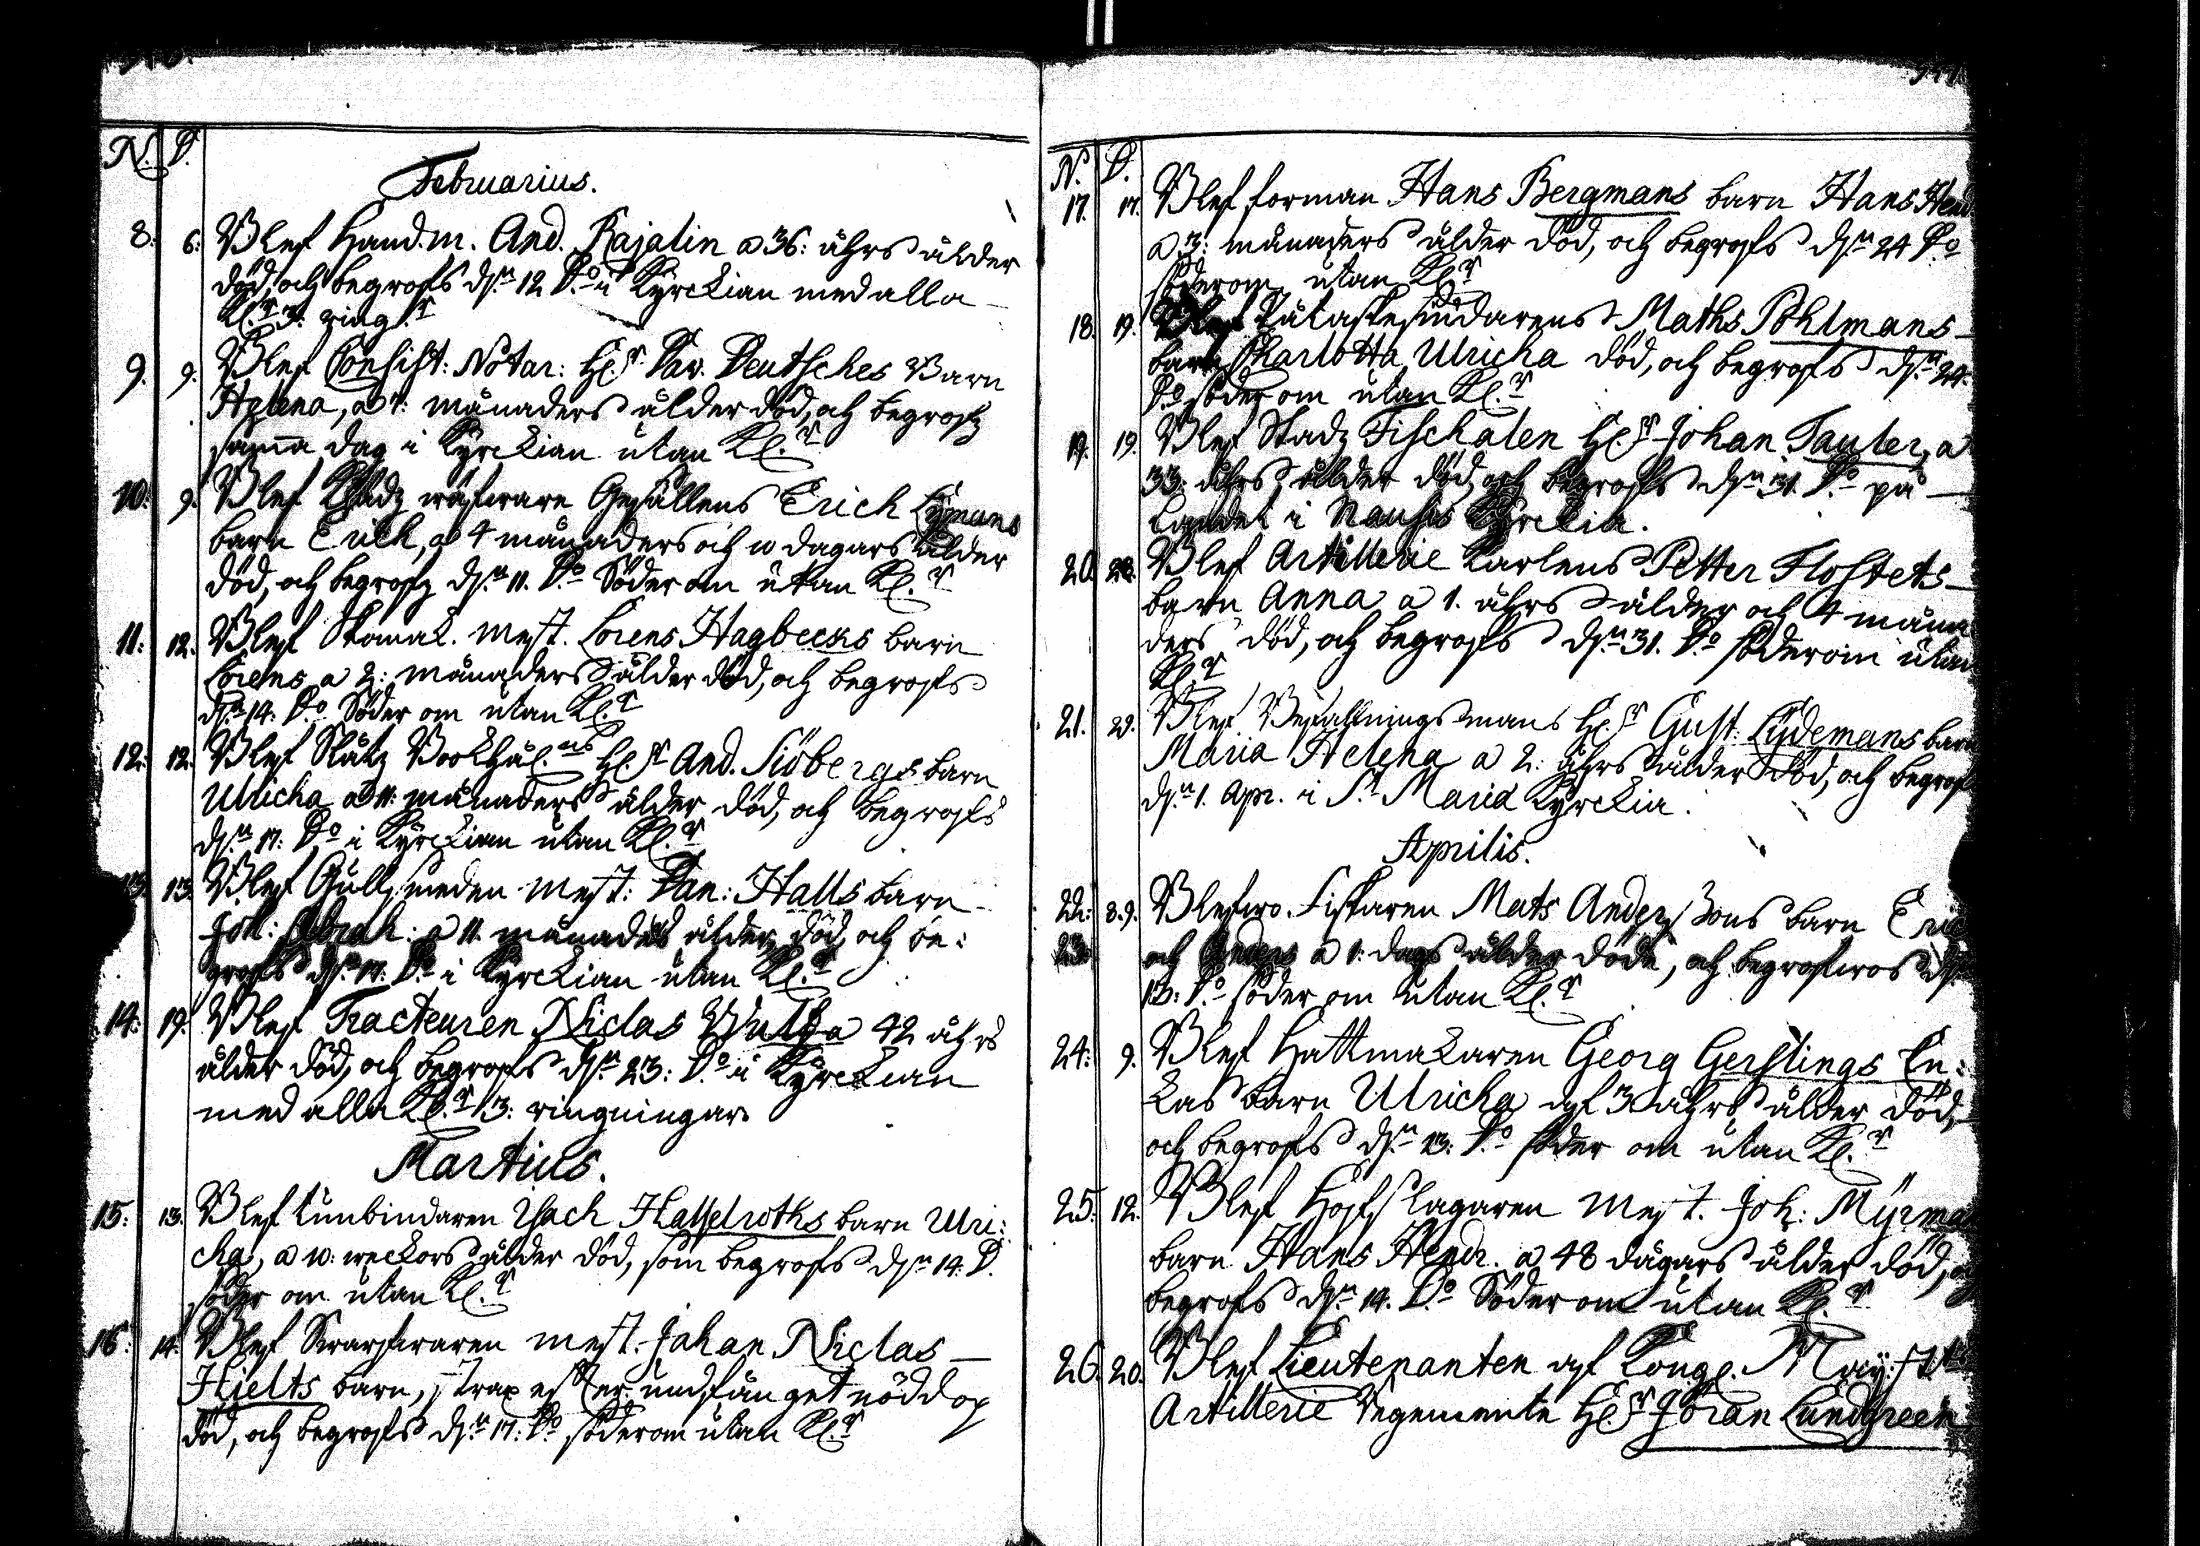 N. D.
Februarius.
8. 6. Blef Hand.m. And. Rajalin a 36: åhrs ålder
död, och begrofs d:n 12 D:o i Kyrckian med alla
Kl:r 3: ring:r
9. 9. Blef Consist: Notar: H:r Dav. Deutsches Barn
Helena, a 7: månaders ålder död, och begrofz
samma dag i Kyrckian utan Kl:r
10: 9. Blef Gesällens Erich Lÿmans
barn Erich, a 4 månaders och 10 dagars ålder
död, och begrofz d:n 11. D:o Söder om utan Kl:r
11: 12. Blef Skomak. mest. Lorens Hagbecks barn
Lorens a 2: månaders ålder död, och begrofs
d:n 14: D:o Söder om utan Kl:r
12: 12. Blef Slåtz Bookhål:ns H:r And. Siöbergs barn
Ulricha a 11: månaders ålder död, och begrofs
d:n 17: D:o i Kyrckian utan Kl:r
13. 13. Blef Gullsmeden mest: Dan: Halls barn
Joh: a 11. månaders ålder död, och be:
grofs d:n 17: D:o i Kyrckian utan Kl:r
14: 19. Blef Tracteuren Niclas Wulf a 42 åhrs
ålder död, och begrofs d:n 23: D:o i Kyrckian
med alla Kl:r 3: ringningar.
Martius.
15: 13. Blef Tunbindaren Isach Hasselroths barn Ulri:
cha, a 10: weckors ålder död, som begrofs d:n 14. D.
söder om utan Kl:r
16: 14. Blef Swarfwaren mest: Johan Niclas
Hielts barn, strax efter undfånget nöddop
död, och begrofs d:n 17: D:o söderom utan Kl:r
N. D.
17. 17. Blef forman Hans Bergmans barn Hans Hend
a 3: månaders ålder död, och begrofs d:n 24 D:o
söderom utan Kl:r
18. 19. Blef Maths Pohlmans
barn Charlotta Ulricha död, och begrofs d:n 24.
D:o söder om utan Kl:r
19. 19. Blef Stadz Fischalen H:r Johan Tauler, a
33: åhrs ålder död, och begrofs d:n 31. D:o på
Landet i Nousis Kyrckia.
20. Blef Artillerie Karlens Petter Flostets
barn Anna a 1. åhrs ålder och 4 måna
ders död, och begrofs d:n 31. D:o söderom utan
Kl:r
21. Blef Befallningsmans H:r Gust: Lÿdemans barn
Maria Helena a 2: åhrs ålder död, och begrof
d:n 1. Apr. i S:t Maria Kyrckia.
Aprilis.
22: 8.9. Blefwo Fiskaren Mats Anderssons barn Eric
23: och Anders a 1: dags ålder döde, och begrofwos d:n
13: D:o söder om utan Kl:r
24: 9. Blef Hattmakaren Georg Gerstlings En:
kas barn Ulricha af 3 åhrs ålder död,
och begrofs d:n 13: D:o söder om utan Kl:r
25: 12. Blef Hofslagaren mest. Joh: Mÿrma
barn Hans Hendr. a 48 dagars ålder död, och
begrofs d:n 14. D:o Söder om utan Kl:r
26. 20. Blef Lieutenanten af Kongl. May:ttz
Artillerie Regemente H:r Jöran Lundgreen